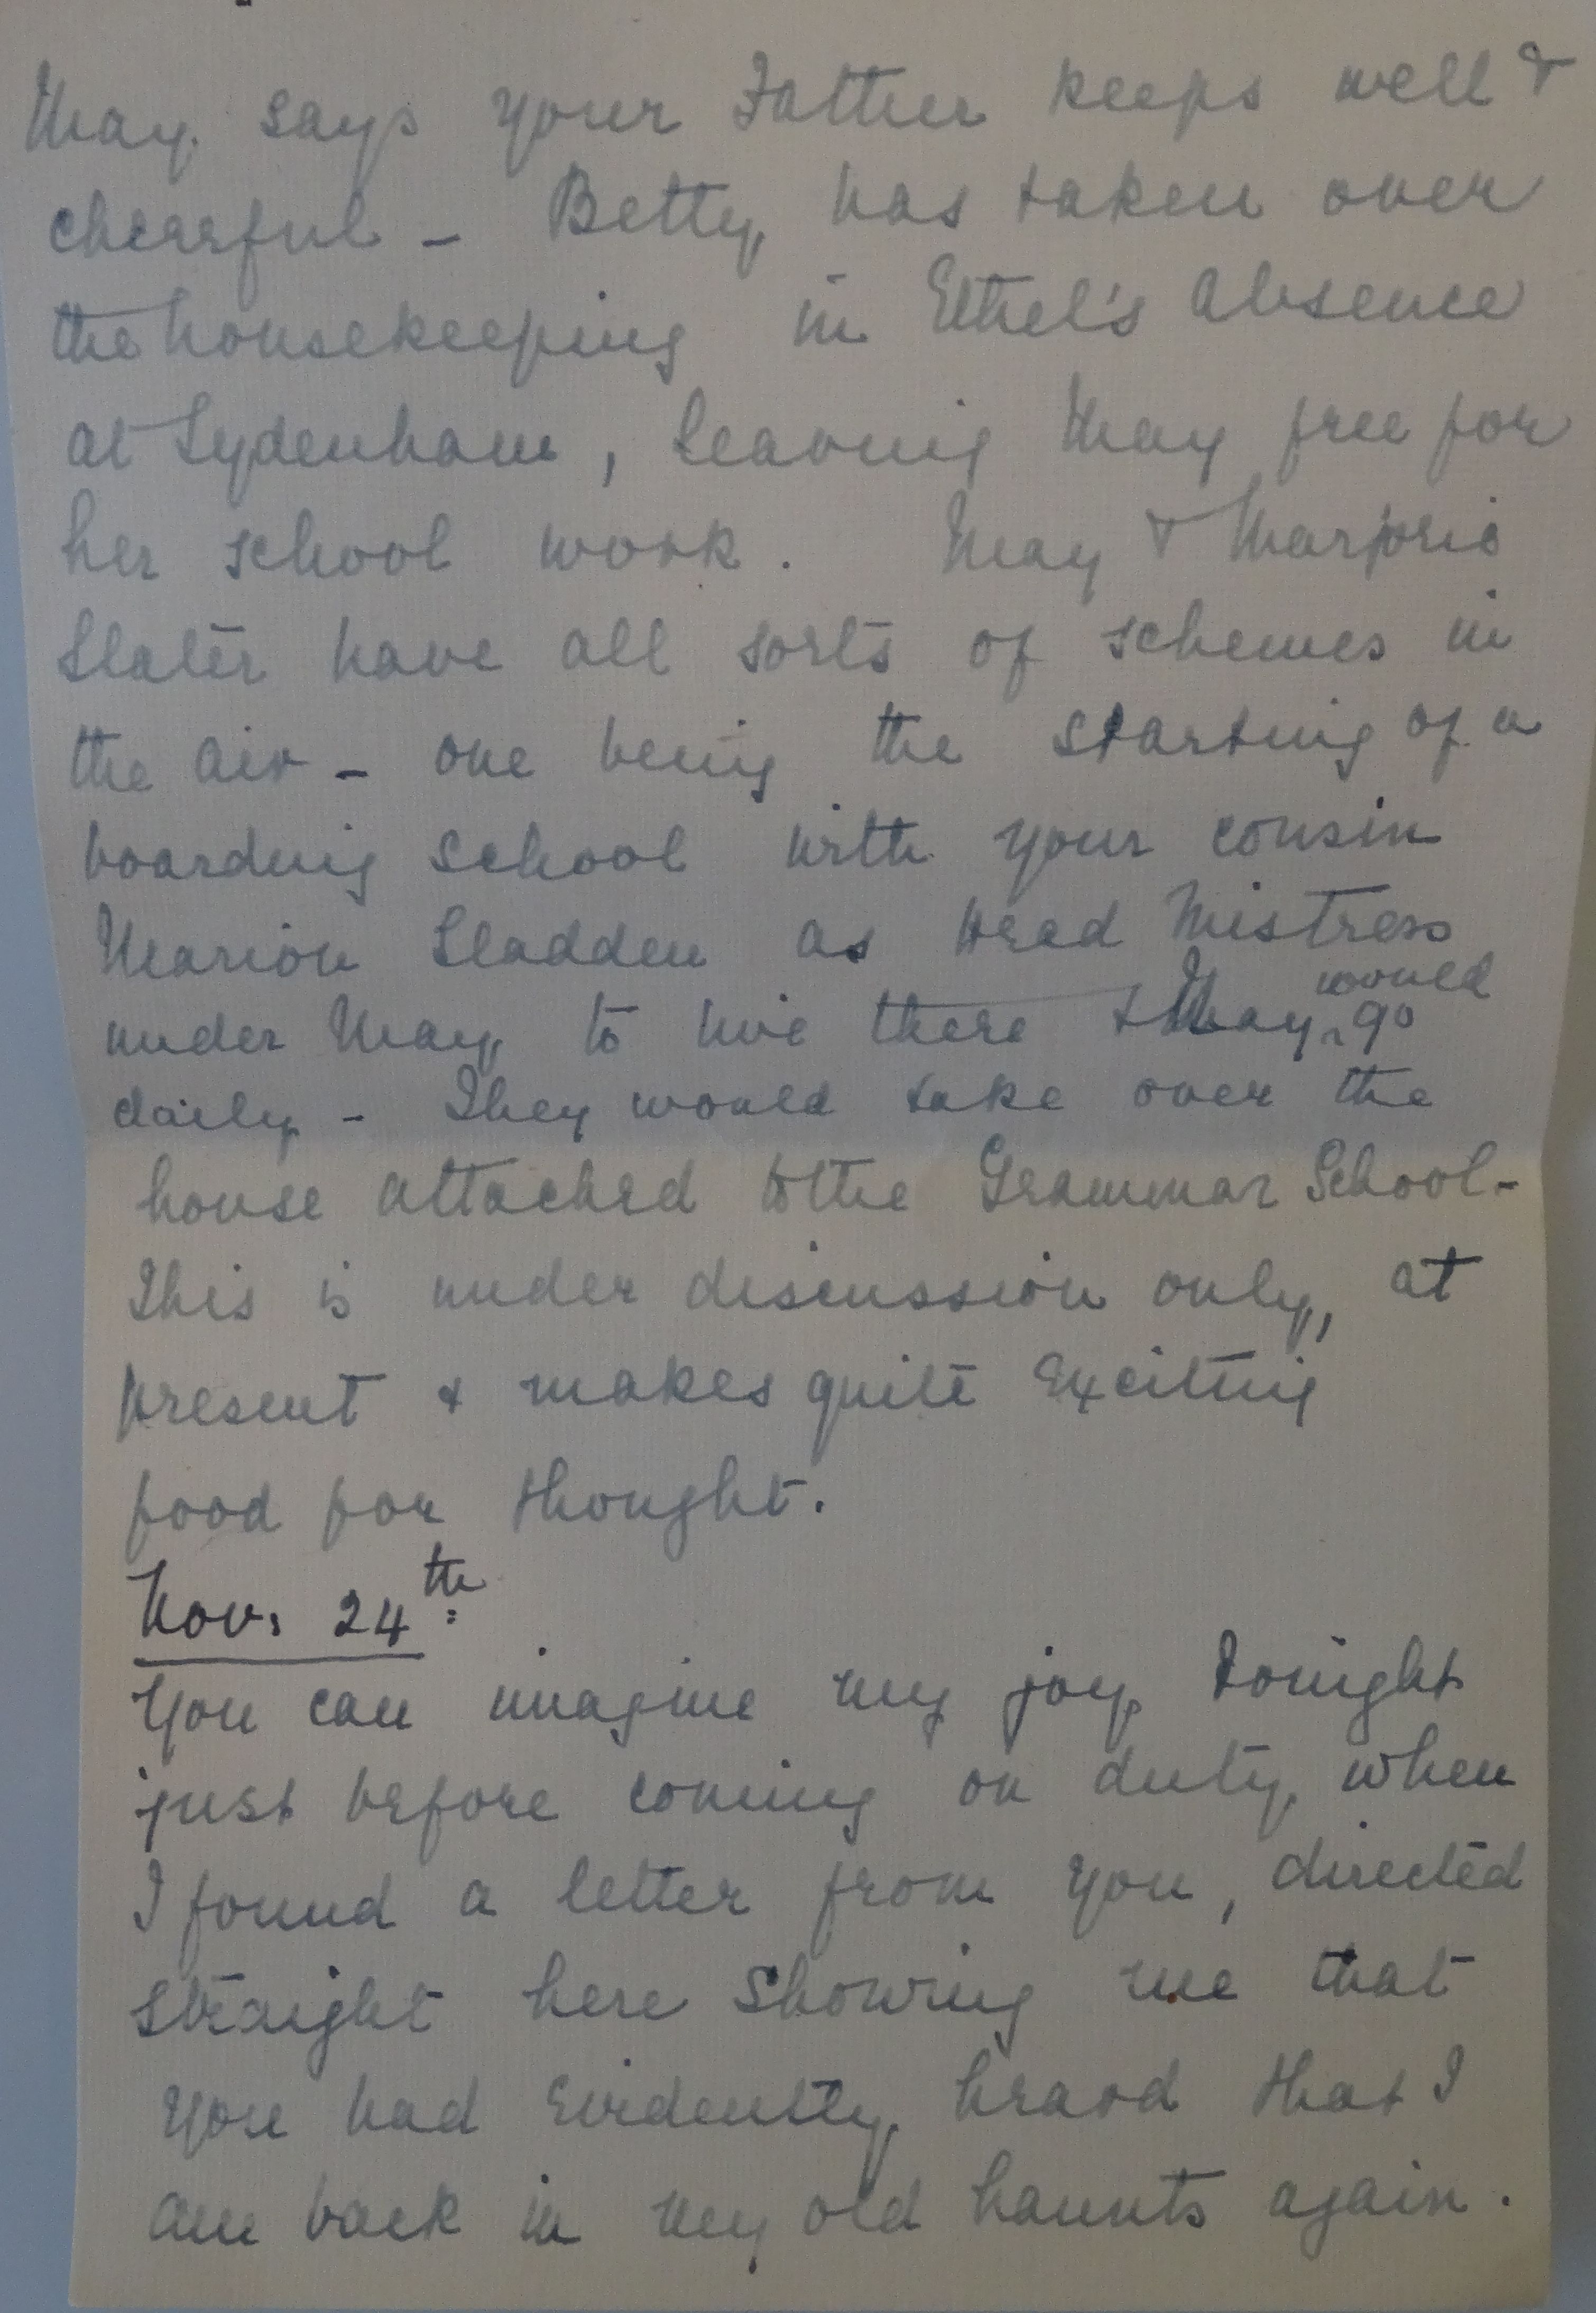 May says your Father keeps well &
cheerful - Betty has taken over
the housekeeping in Ethel's absence
at Sydenham, leaving May free for
her school work. May & Marjorie
Slater have all sorts of schemes in
the air - one being the starting of a
boarding school with your cousin
Marion Sladden as Head Mistress
under May, to live there & May would go
daily - They would take over the
house attached to the Grammar School -
This is under discussion only, at
present & makes quite exciting
food for thought.
Nov: 24th
You can imagine my joy tonight
just before coming on duty, when
I found a letter from you, directed
straight here showing me that
you had evidently heard that I
am back in my old haunts again.